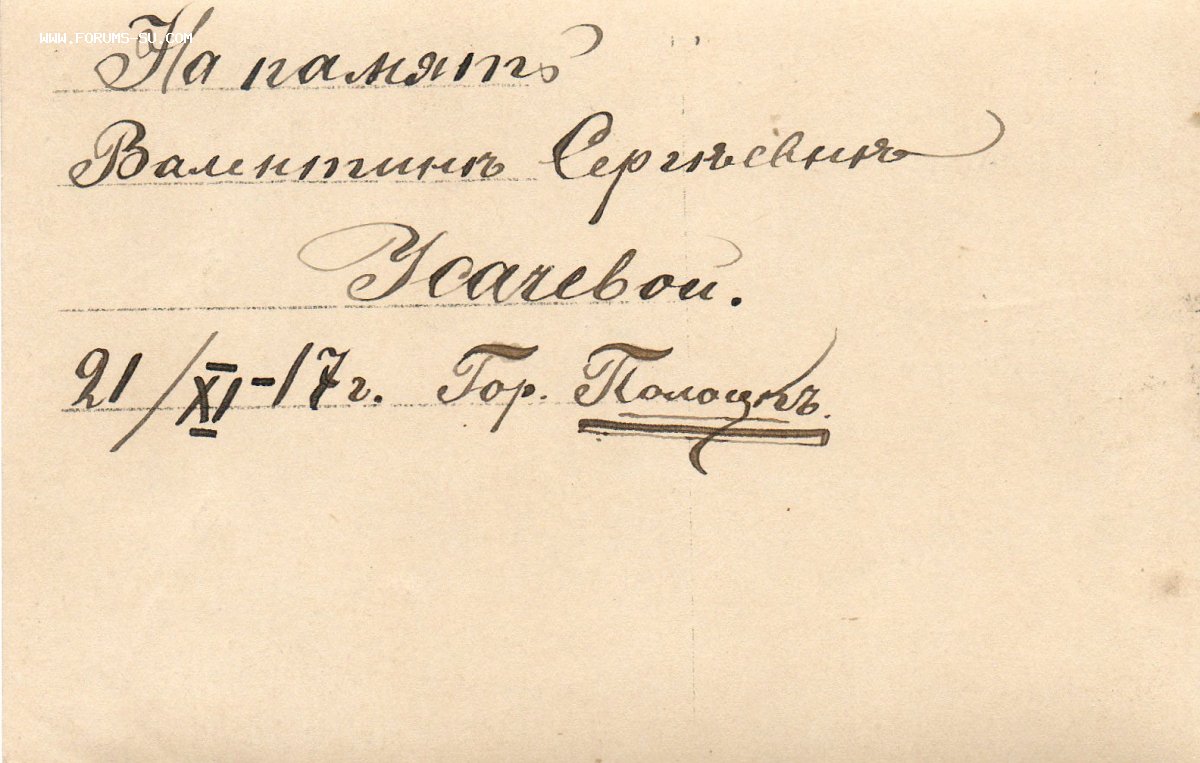 WWW.FORUMS-SU.COM
На память
Валентинѣ Сергѣевнѣ
Усачевой.
21/XI-17 г. Гор. Полоцкъ.